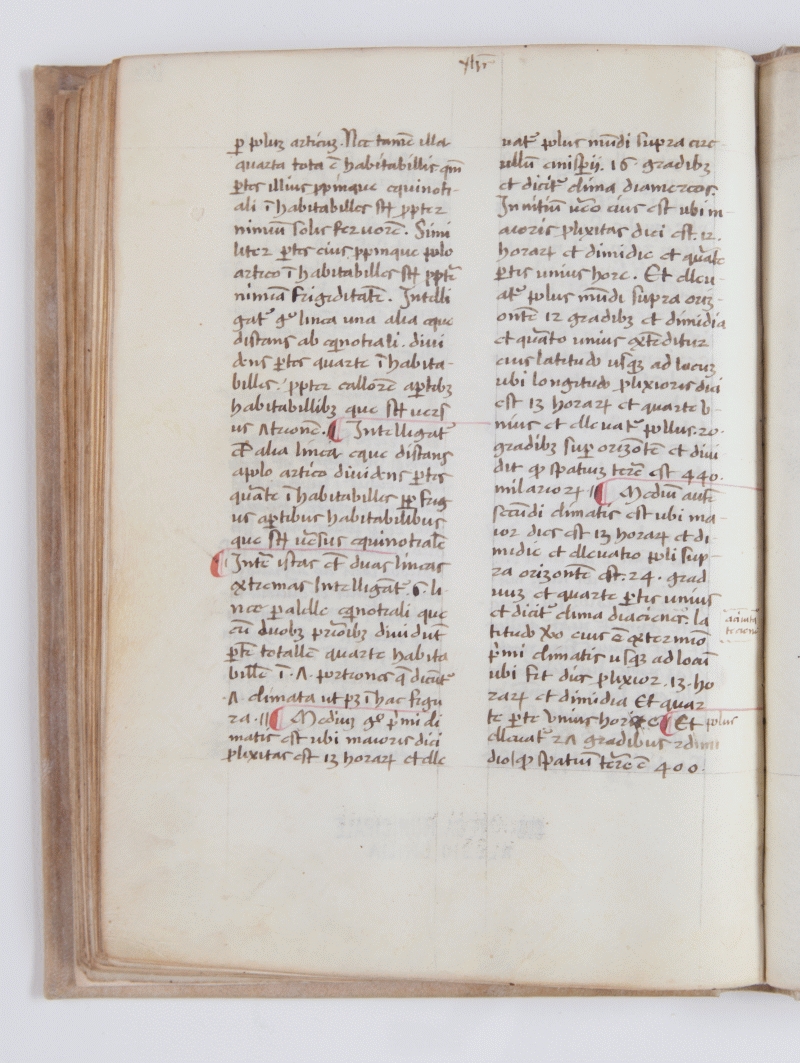 p̱ poluȝ articuȝ. Nec tamē illa
quarta tota ē habitabillis qm̄
p̱tes illius ꝓpinque equinoti-
ali īhabitabilles sūt ꝓpter
nimiuȝ solis feruorē. Simi
liter p̱tes eius ꝓpinque polo
artico īhabitabilles sūt ꝓpt̄
nimiā frigeditatē. Intelli
gat᷑ gͦ linea una alia eque
distans ab eq̄notiali. diui
dens p̱tes quarte īhabita-
billes. ꝓpter callorē a p̱tibȝ
habitabillibȝ que sūt uers
us Λtrionē. ¶ Intelligat᷑
et̄ alia linea eque distans
a polo artico diuidens p̱tes
quāte īhabitabilles ꝓp frig
us a p̱tibus habitabilibus
que sūt uersus equinotialē
¶ Inter̄ istas et̄ duas lineas
extremas Intelligāt᷑ .6. li-
nee paralelle eq̄notiali que
cū duobȝ prioribȝ diuidūt
p̱tē totallē quarte habita
billē ī .Λ. portiones q̄ dicūt᷑
.Λ. climata ut pȝ ī hac figu
ra. // ¶ Mediuȝ gͦ p̄mi cli
matis est ubi maioris diei
plixitas est 13 horaꝝ et elle
uat᷑ polus mūdi supra circ
ullū emisp̱ij. 16. gradibȝ
et dicit᷑ clima diameroes.
Innitiū uͦo eius est ubi m-
aioris plixitas diei est. 12.
horaꝝ et dimidie et quāte
p̱tis unius hore. Et elleu-
at᷑ polus mūdi supra oriz-
ontē 12 gradibȝ et dimidia
et quāto unius extēditur
eius latitudo usqȝ ad locuȝ
ubi longitudo plixioris diei
est 13 horaꝝ et quarte u-
nius et elleuat᷑ pollus. 20.
gradibȝ sup orizōtē et diui
dit᷑ ꝙ spatiuȝ terē est 440.
miliarioꝝ // ¶ Mediū autē
secūdi climatis est ubi ma-
ior dies est 13 horaꝝ et di-
midie et elleuatio poli sup-
ra orizontē est. 24. grad
uuȝ et quarte p̱tis unius
et dicit᷑ clima diacienes. la
titudo uͦo eius ē ex termīo
p̄mi climatis usqȝ ad locū
ubi fit dies plixior. 13. ho
raꝝ et dimidia Et quar
te p̱te unius hor ¶ Et polus
elleuat᷑ 2Λ gradibus 2dimi
dio/ꝙ spatiū terē ē 400.